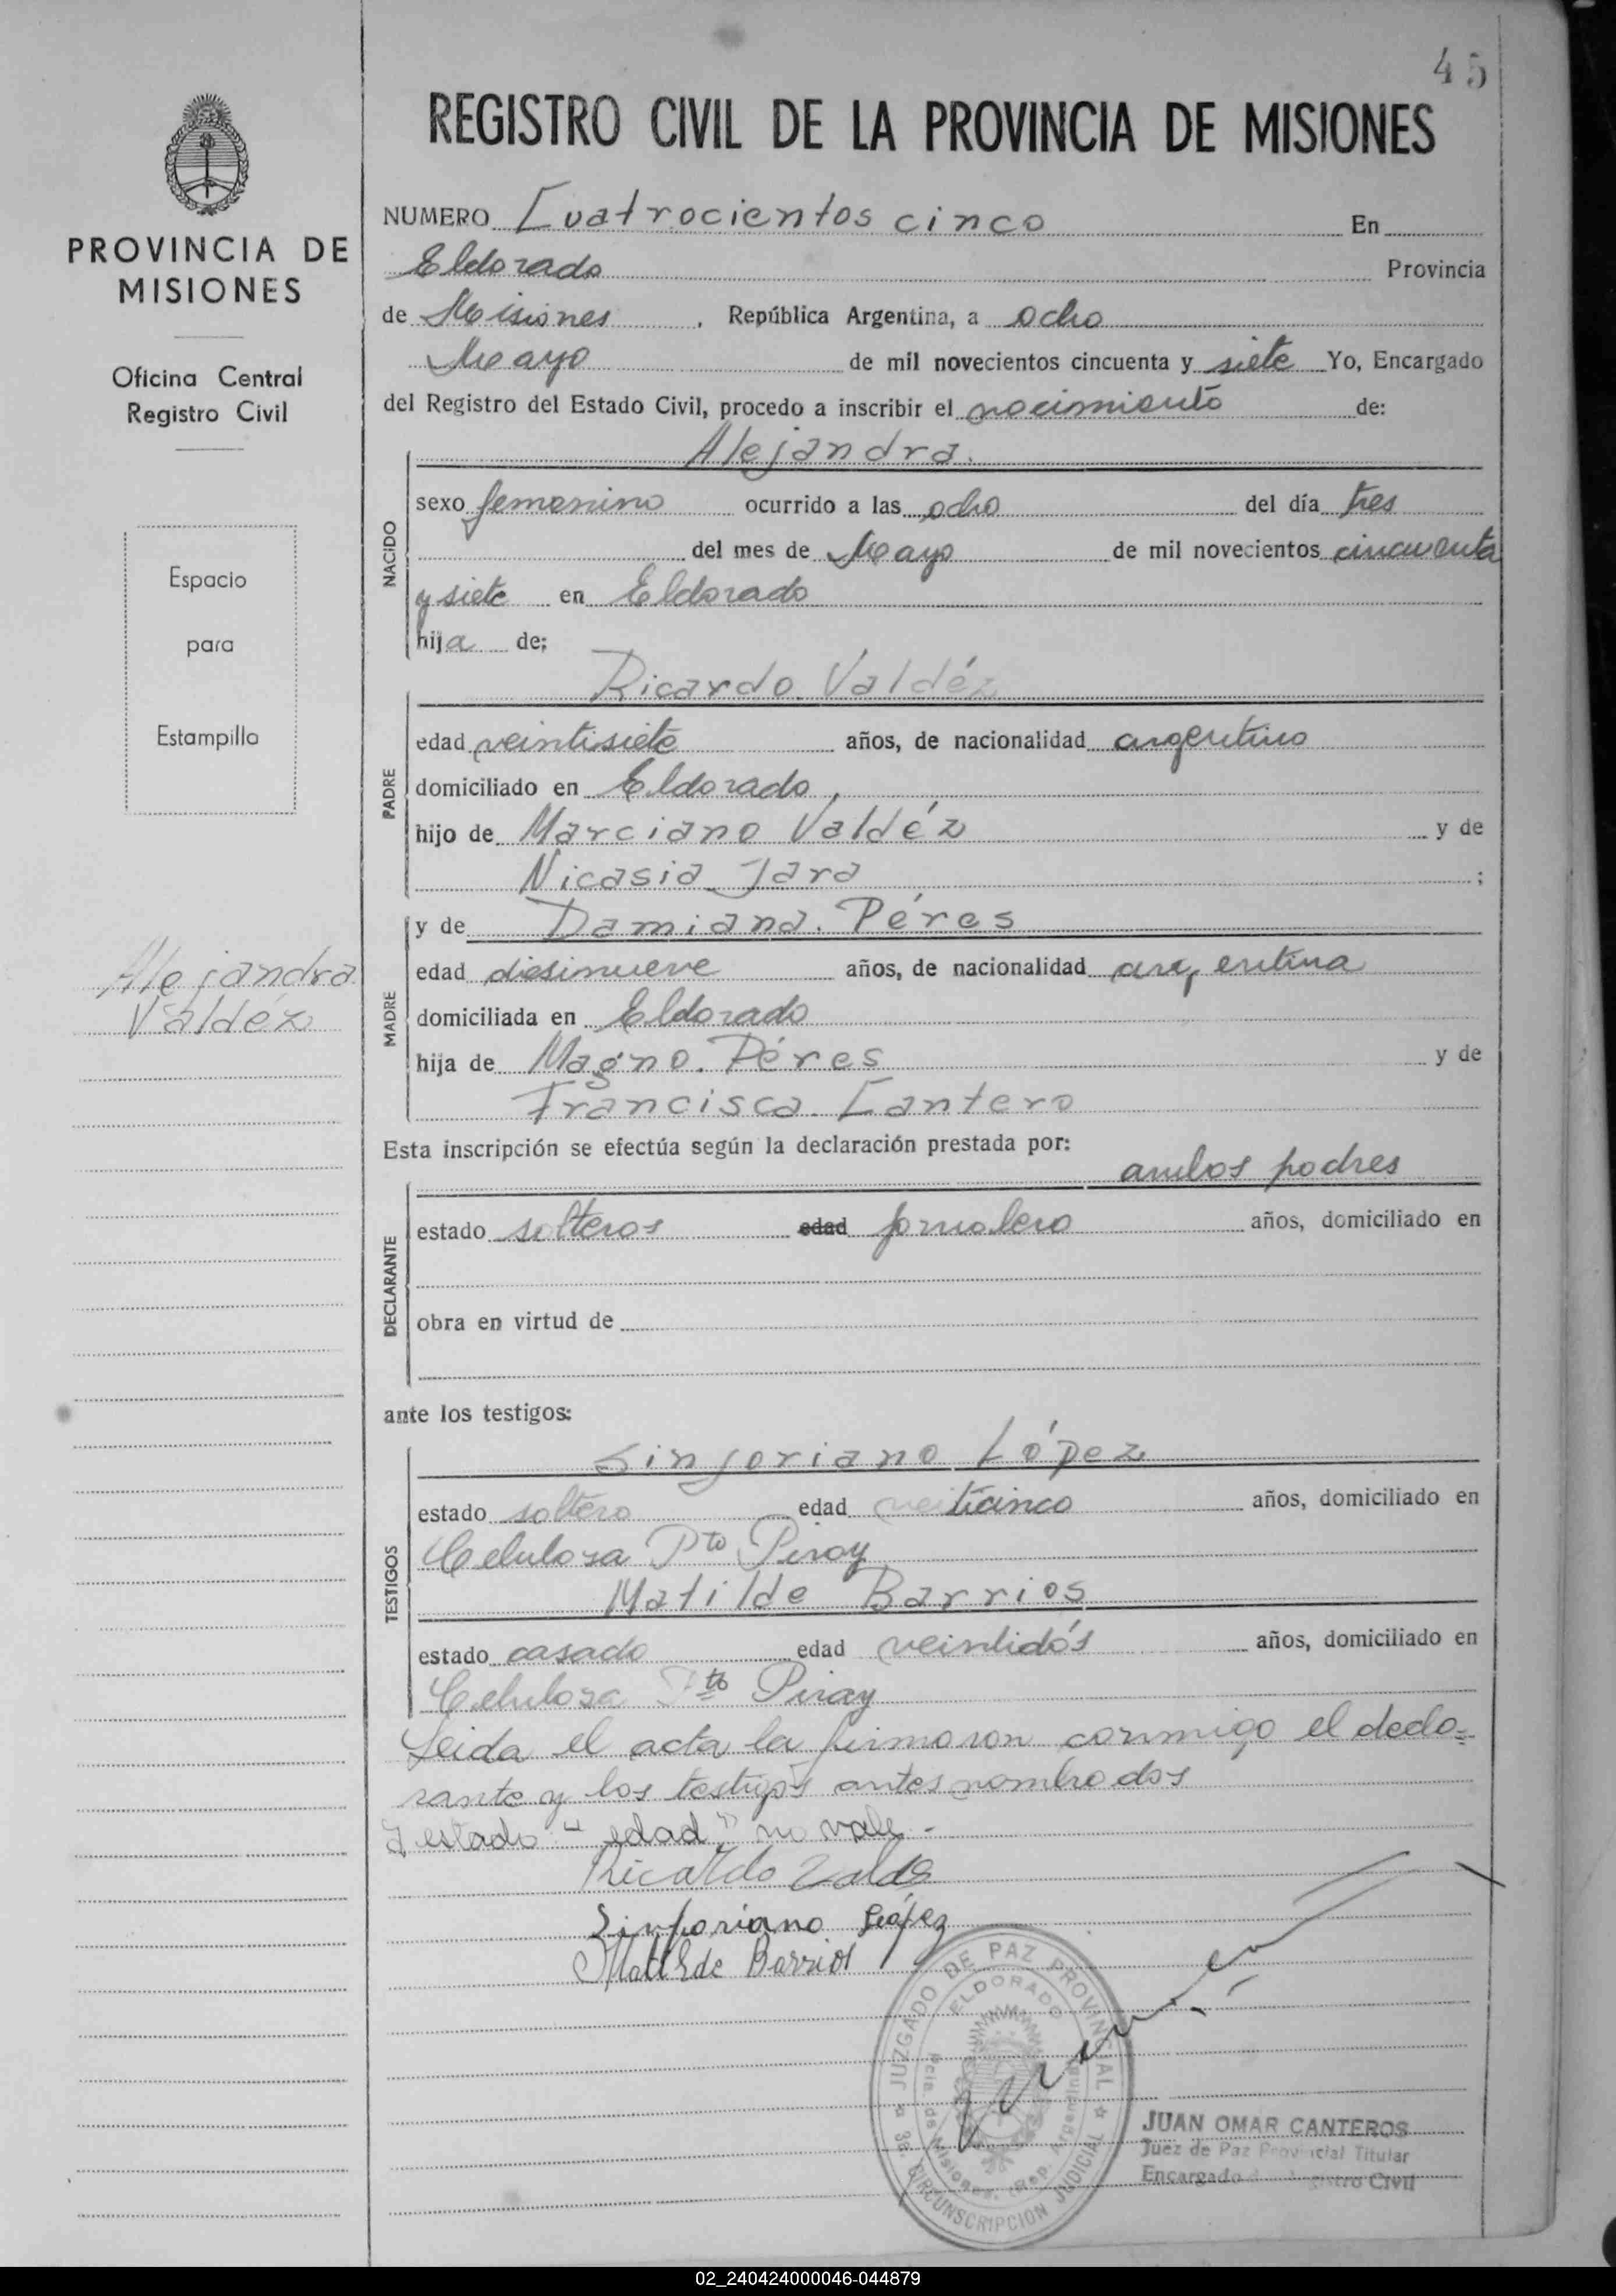 45
REGISTRO CIVIL DE LA PROVINCIA DE MISIONES
PROVINCIA DE
MISIONES
Oficina Central
Registro Civil
Espacio
para
Estampilla
Alejandra
Valdéz
NUMERO Cuatrocientos cinco En
Eldorado Provincia
de Misiones, República Argentina, a ocho
Mayo de mil novecientos cincuenta y siete Yo, Encargado
del Registro del Estado Civil, procedo a inscribir el nacimiento de:
Alejandra.
NACIDO
sexo femenino ocurrido a las ocho del día tres
del mes de Mayo de mil novecientos cincuenta
y siete en Eldorado
hija de:
Ricardo Valdéz
PADRE
edad veintisiete años, de nacionalidad argentino
domiciliado en Eldorado
hijo de Marciano Valdéz y de
Nicasia Jara ;
y de Damiana. Péres
MADRE
edad diesinueve años, de nacionalidad argentina
domiciliada en Eldorado
hija de Magno. Péres y de
Francisca Cantero
Esta inscripción se efectúa según la declaración prestada por:
ambos padres
DECLARANTE
estado solteros edad jornalero años, domiciliado en
obra en virtud de
ante los testigos:
Sinforiano López
TESTIGOS
estado soltero edad veiticinco años, domiciliado en
Celulosa Pto Piray
Matilde Barrios
estado casado edad veintidós años, domiciliado en
Celulosa Pto Piray
Leida el acta la firmaron conmigo el decla=
rante y los testigos antes nombrados
estado "edad" no vale -
Ricardo Valde
Sinforiano López
Matilde Barrios
JUZGADO DE PAZ PROVINCIAL
ELDORADO
Pcia. de Misiones. (Rep. Argentina)
3a. CIRCUNSCRIPCION JUDICIAL
JUAN OMAR CANTEROS
Juez de Paz Provincial Titular
Encargado Registro Civil
02_240424000046-044879